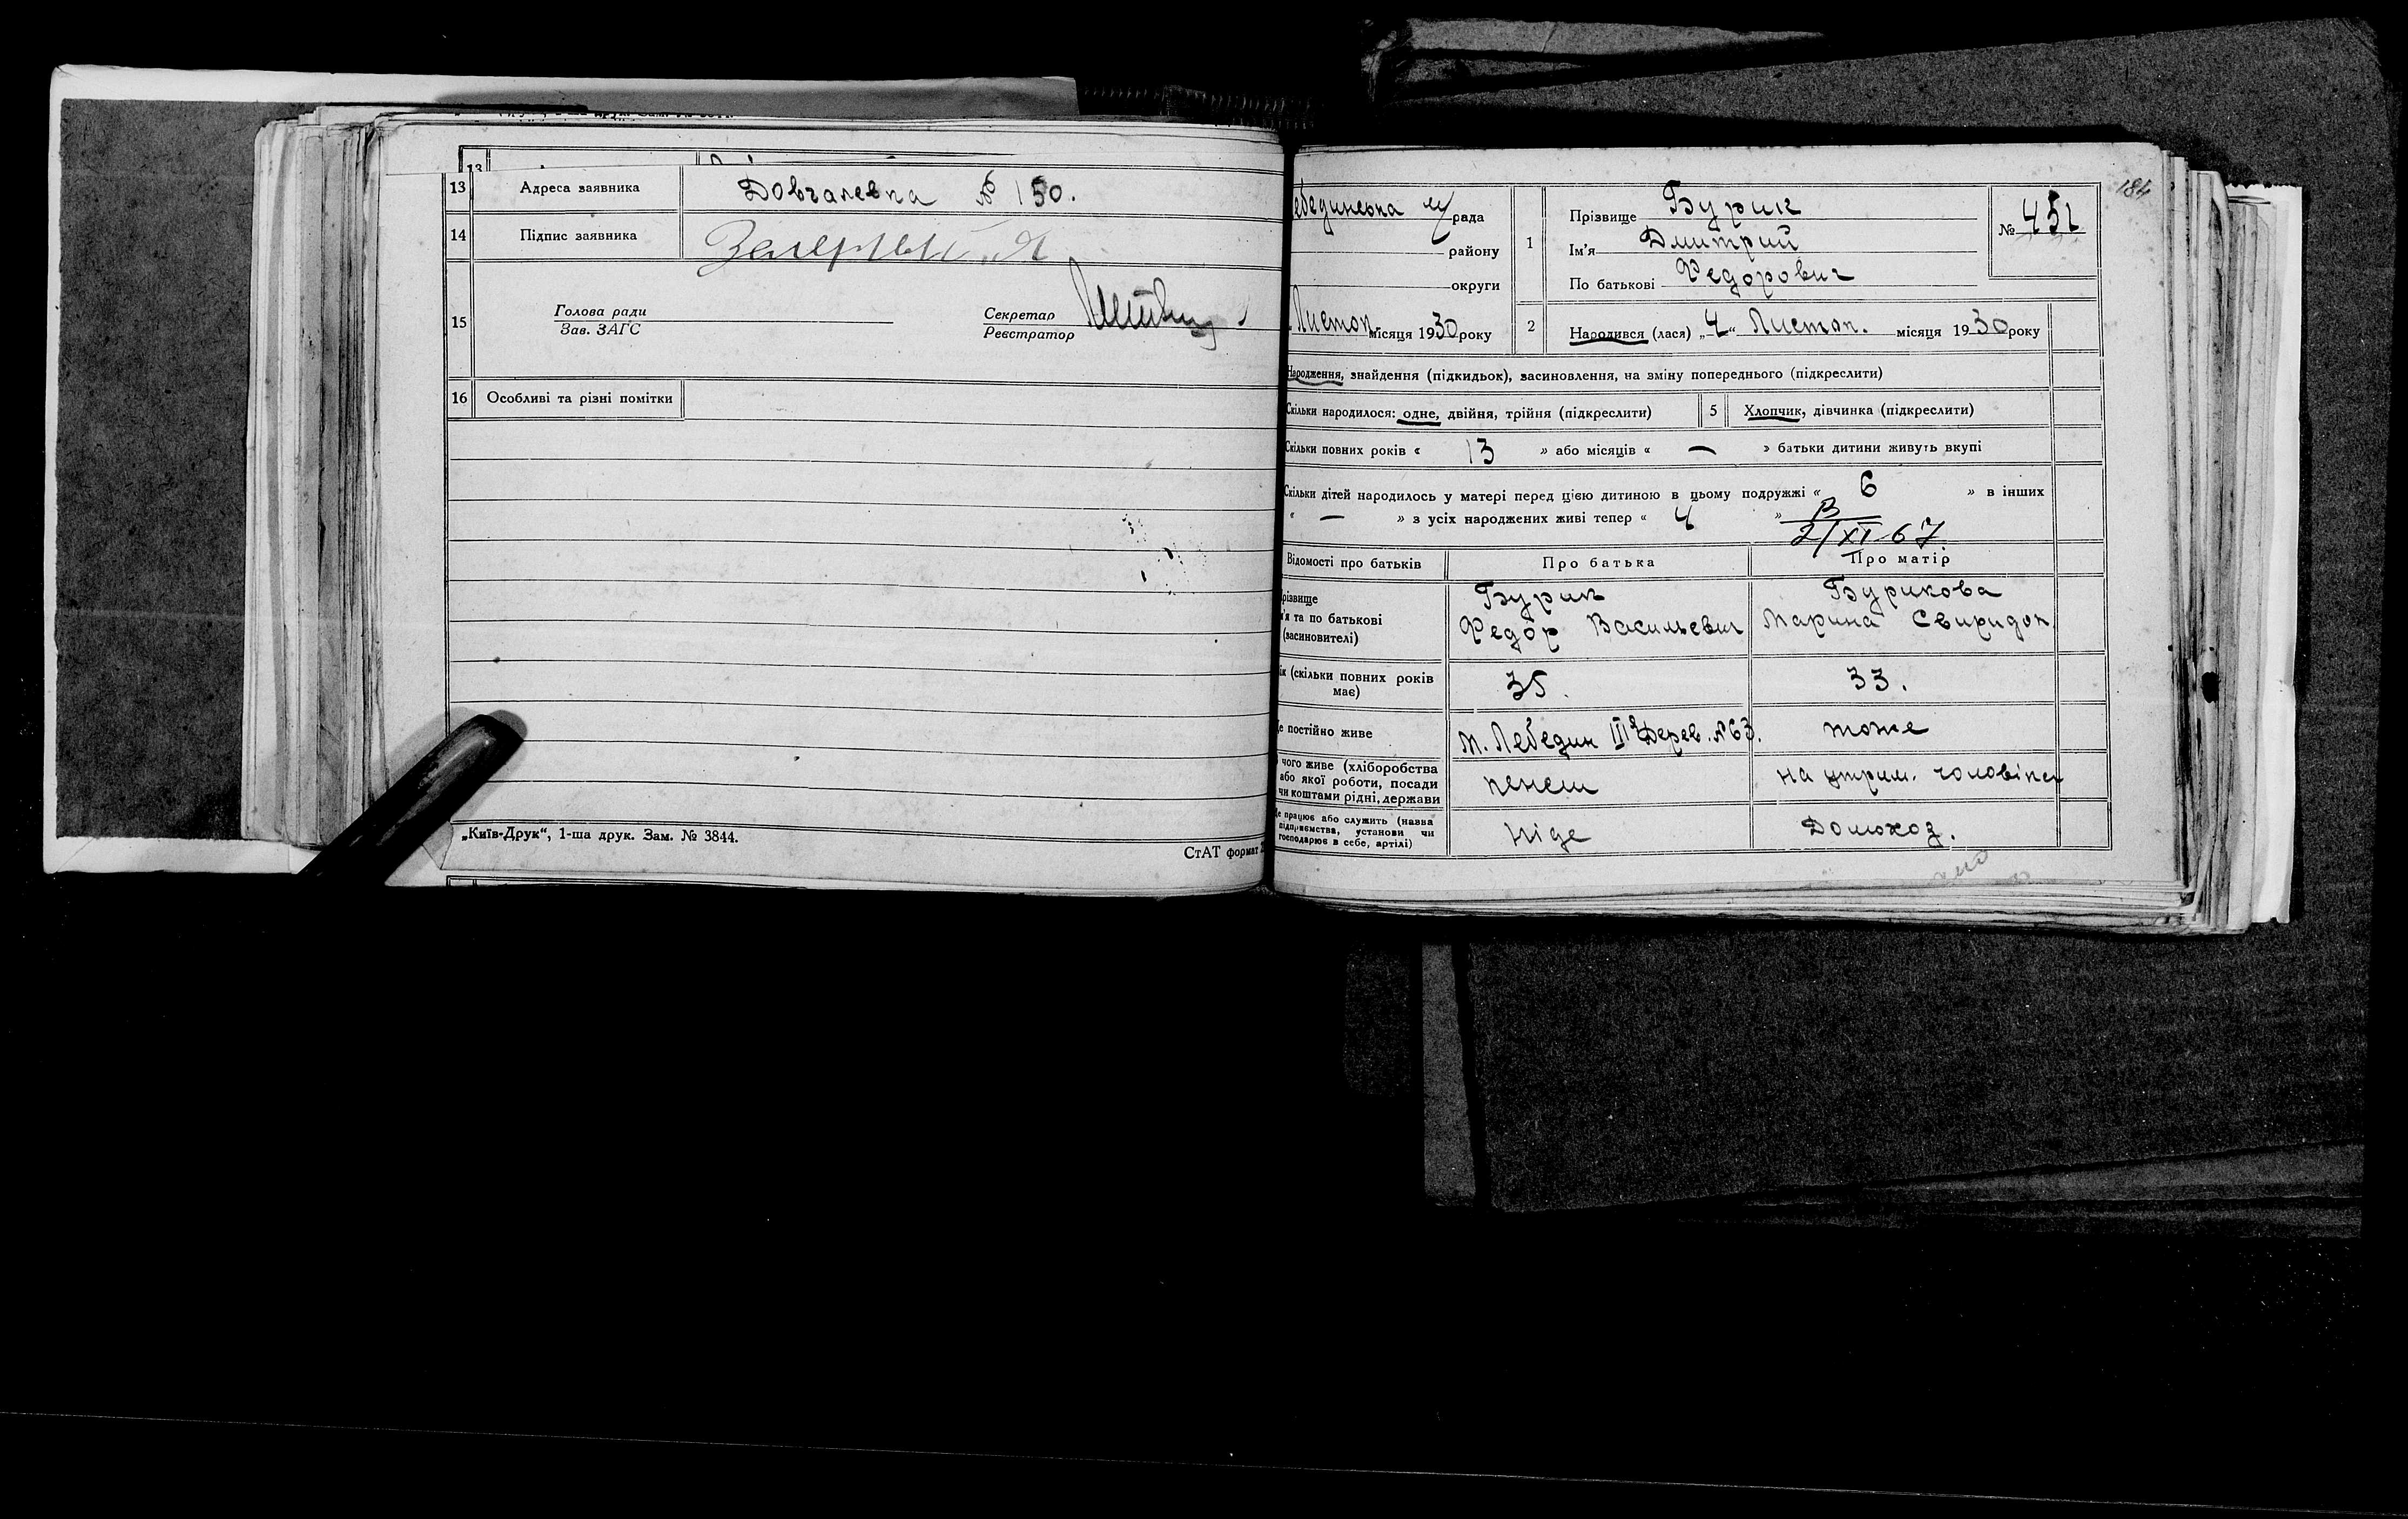 13 Адреса заявника Довгалевка № 150.
14 Підпис заявника
15 Голова ради
Зав. ЗАГС
Секретар
Реєстратор
16 Особливі та різні помітки
„Київ-Друк“, 1-ша друк. Зам. № 3844.
СтАТ формат
184
ебединська рада
району
округи
Листоп. місяця 1930 року
1 Прізвище Бурик
Ім'я Дмитрий
По батькові Федорович
№ 451
2 Народився (лася) „4“ Листоп. місяця 1930 року
Народження, знайдення (підкидьок), засиновлення, на зміну попереднього (підкреслити)
Скільки народилося: одне, двійня, трійня (підкреслити) 5 Хлопчик, дівчинка (підкреслити)
Скільки повних років « 13 » або місяців « — » батьки дитини живуть вкупі
Скільки дітей народилось у матері перед цією дитиною в цьому подружжі « 6 » в інших
« — » з усіх народжених живі тепер « 4 »
В
2/XI-67
Відомості про батьків Про батька Про матір
різвище
м'я та по батькові
(засиновителі)
Бурик
Федор Васильевич
Бурикова
Марина Свиридон.
ік (скільки повних років
має)
35.
33.
е постійно живе м. Лебедин III Дерев. №63. тоже
чого живе (хліборобства
або якої роботи, посади
чи коштами рідні, держави
на утрим. чоловіка
е працює або служить (назва
підприємства, установи чи
господарює в себе, артілі)
Ніде
Домохоз.